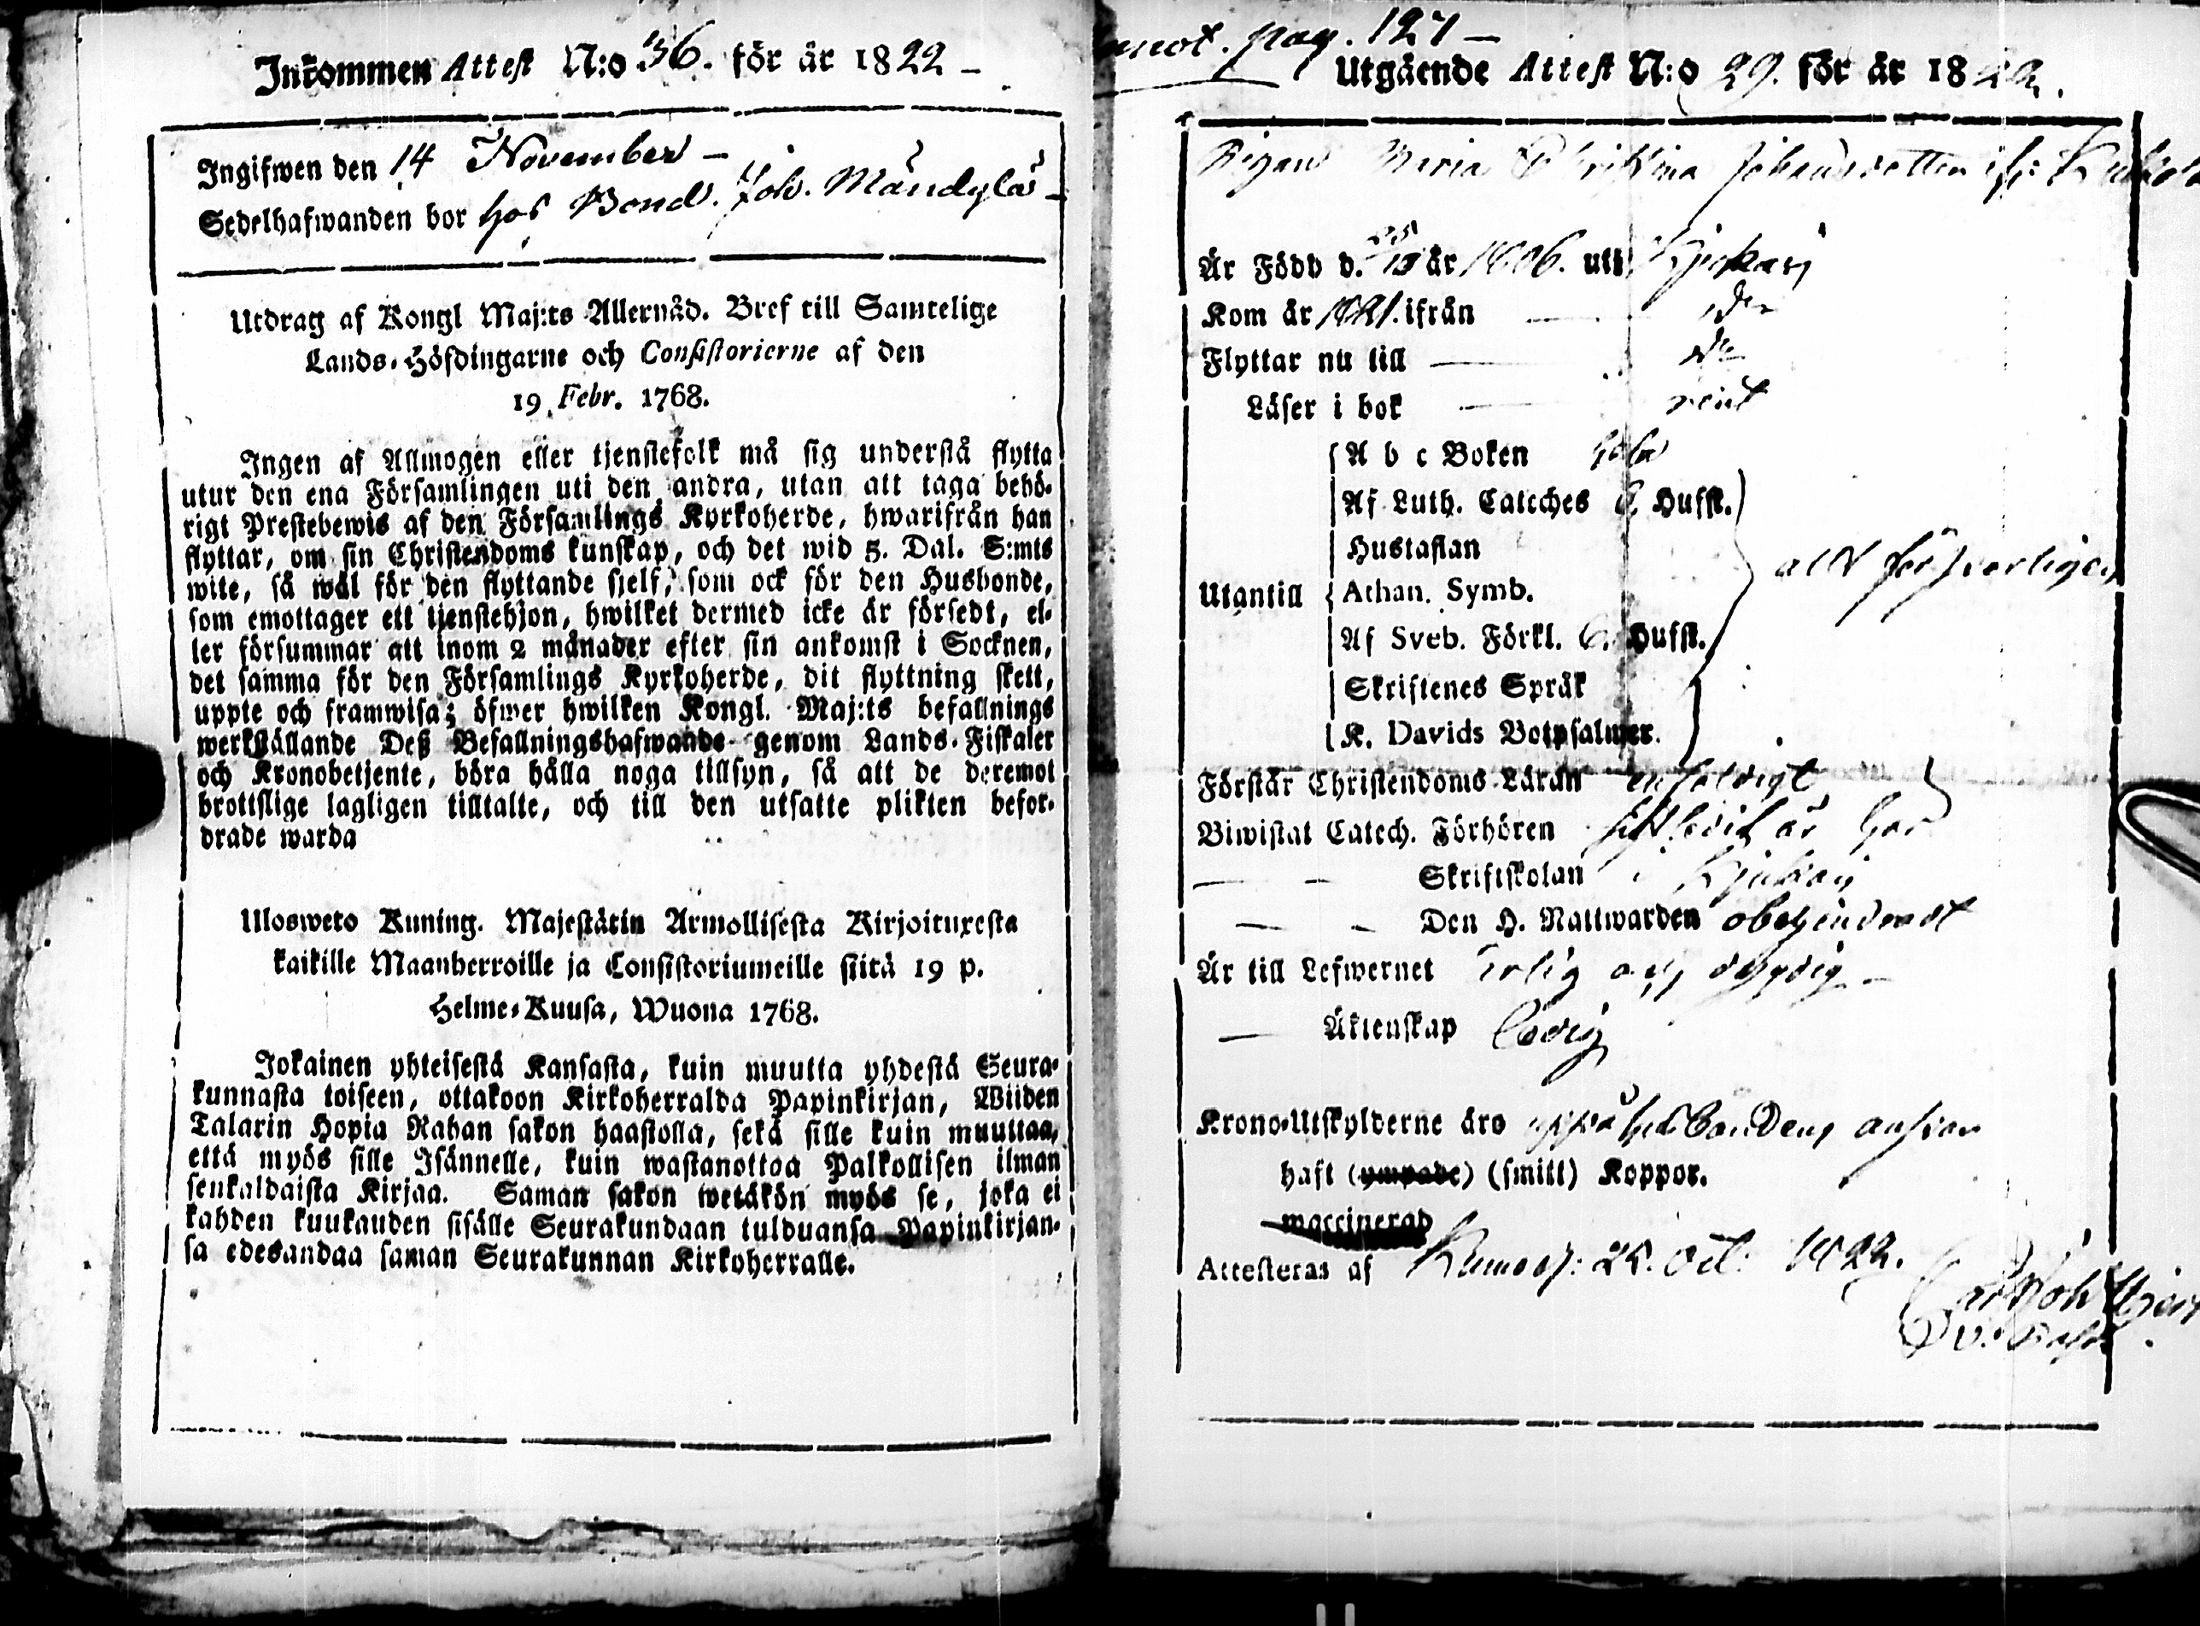 Inkommen Attest N:o 36. för år 1822 –
Ingifwen den 14 November –
Sedelhafwanden bor hos Bond. Joh. Mändylä –
Utdrag af Kongl Maj:ts Allernåd. Bref till Samtelige
Lands-Höfdingarne och Consistorierne af den
19 Febr. 1768.
Ingen af Allmogen eller tjenstefolk må sig understå flytta
utur den ena Församlingen uti den andra, utan att taga behö-
rigt Prestebewis af den Församlings Kyrkoherde, hwarifrån han
flyttar, om sin Christendoms kunskap, och det wid 5. Dal. S:mts
wite, så wäl för den flyttande sjelf, som ock för den Husbonde,
som emottager ett tjenstehjon, hwilket dermed icke är försedt, el-
ler försummar att inom 2 månader efter sin ankomst i Socknen,
det samma för den Församlings Kyrkoherde, dit flyttning skett,
uppte och framwisa; öfwer hwilken Kongl. Maj:ts befallnings
werkställande Deß Befallningshafwande genom Lands-Fiskaler
och Kronobetjente, böra hålla noga tillsyn, så att de deremot
brottslige lagligen tilltalte, och till den utsatte plikten befor-
drade warda
Ulosweto Kuning. Majestätin Armollisesta Kirjoituxesta
kaikille Maanherroille ja Consistoriumeille siitä 19 p.
Helme-Kuusa, Wuona 1768.
Jokainen yhteisestä Kansasta, kuin muutta yhdestä Seura-
kunnasta toiseen, ottakoon Kirkoherralda Papinkirjan, Wiiden
Talarin Hopia Rahan sakon haastolla, sekä sille kuin muuttaa,
että myös sille Isännelle, kuin wastanottaa Palkollisen ilman
senkaldaista Kirjaa. Saman sakon wetäkön myös se, joka ei
kahden kuukauden sisälle Seurakundaan tulduansa Papinkirjan-
sa edesandaa saman Seurakunnan Kirkoherralle.
pag. 127 –
Utgående Attest N:o 29. för år 1822.
Pigan Maria Christina Johansdotter
Är Född d. år 1806. uti
Kom år 1821. ifrån — do
Flyttar nu till — do
Läser i bok — rent
A b c Boken
Af Luth. Cateches 6 Hufst.
Hustaflan
Utantill Athan. Symb. allt försvarligen
Af Sveb. Förkl. 6. Hufst.
Skriftenes Språk
K. Davids Botpsalmer.
Förstår Christendoms Läran enfaldigt
Biwistat Catech. Förhören
— — Skriftskolan i
— — Den H. Nattwarden obehindradt
Är till Lefwernet ärlig och dygdig –
— Äktenskap ledig
Krono-Utskylderne äro uppå husbondens ansvar
haft (ympade) (smitt) Koppor.
waccinerad
Attesteras af Oct. 1822.